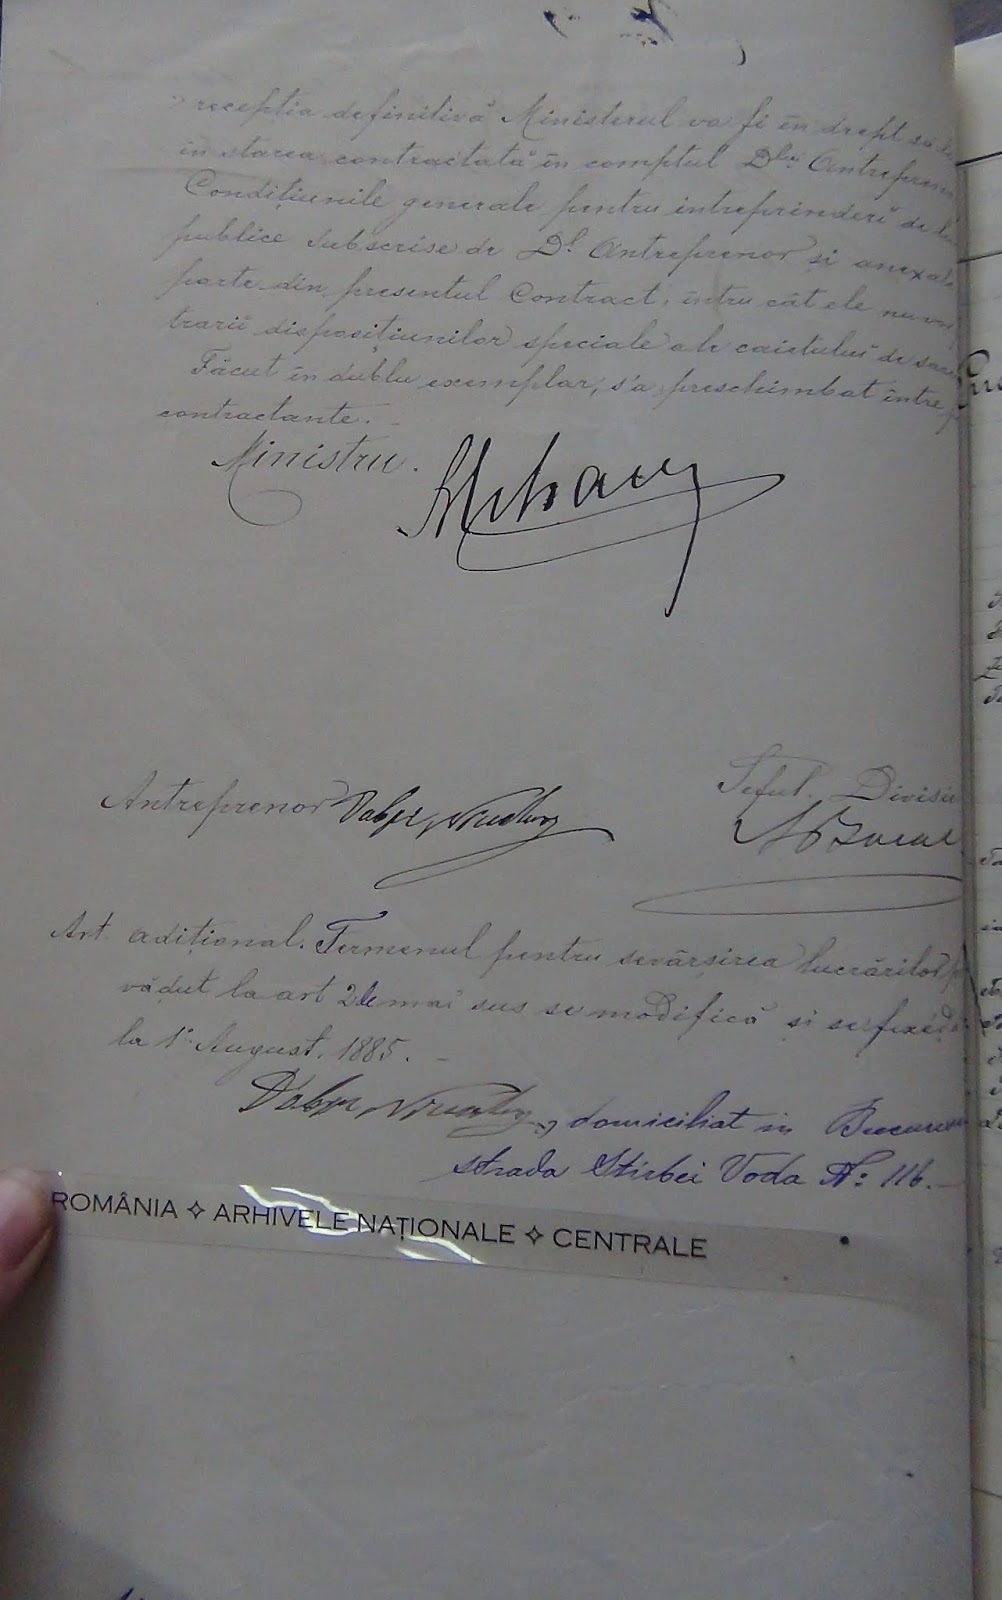 recepția definitivă Ministerul va fi în drept să
în starea contractată în comptul Dlui Antrepren
Condițiunile generale pentru intreprinderi de
publice subscrise de Dl Antreprenor și anexat
parte din presentul Contract, întru cât ele nu vor
trarii dispozițiunilor speciale ale caietului de sarc
Făcut în dublu exemplar, s'a preschimbat între
contractante.
Ministru.
Antreprenor
Șeful Divisi
Art. adițional. Termenul pentru sevârșirea lucrărilor
vădut la art 2 de mai sus se modifică și se fixéd
la 1 August. 1885.
domiciliat in Bucuresci
strada Stirbei Voda No: 116.
ROMÂNIA ✧ ARHIVELE NAȚIONALE ✧ CENTRALE